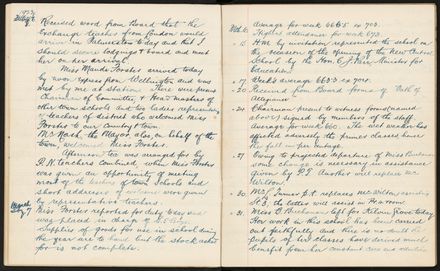 Received word from Board that the
Exchange teacher from London would
arrive in Palmerston today and that I
should secure lodgings & board and meet
her on her arrival.
Miss Maude Forster arrived today
by noon express from Wellington and was
met by me at station. There were present
Chairman of Committee, & Head masters of
other town schools and two ladies representing
teachers of district who welcomed Miss
Forster to our Country & town.
the Mayor also, on behalf of the
town, welcomed Miss Forster.
Afternoon tea was arranged for by
P.N. teachers Institute when Miss Forster
was given an opportunity of meeting
most of the teachers of town schools and
short addresses of welcome were given
by representative teachers.
Miss Forster reported for duty today and
was placed in charge of
Supplies of goods for use in school during
the year are to hand but the stock asked
for is not complete.
Average for week 666.5 ex 703.
Highest attendance for week 673
15 Have by invitation represented the school on
the occasion of the opening of the New Central
School by the Hon. C. J. Parr Minister for
Education.
17 Week's average 663.3 ex 704.
20 Received from Board forms of Oath of
Allegiance
24 Chairman present to witness forms (named
above) signed by members of the staff.
Average for week 660. The wet weather has
affected adversely the primer classes hence
the fall in percentage.
27 Owing to projected departure of Miss
would change is necessary in assistance
given by P.T. Another will replace
Wilson.
30
the latter will assist in Headroom
31 Miss D. Buchanan left for Kelvin Grove today
Her work in this school has been carried
out faithfully and there is no doubt the
pupils of her classes have derived much
benefit from her constant care and